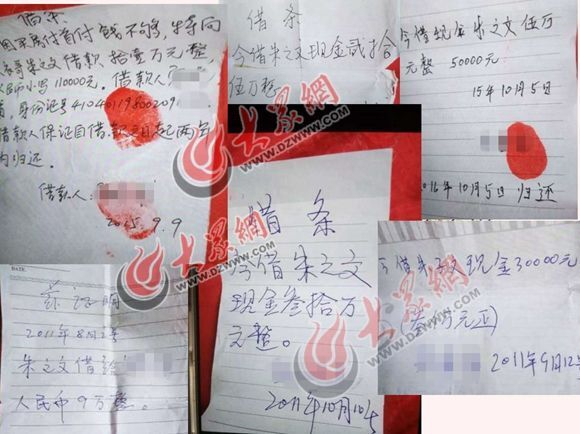 借条
因买房付首付钱不够，特向
表哥朱之文借款 拾壹万元整
110000元。借款人
身份证号410401198002091
借款人保证自借款之日起两年
内归还。
借款人：
2015.9.9
借条
今借朱之文现金贰拾
伍万整
今借现金朱之文伍万
元整 50000元
15年10月5日
2016年10月5日归还
DATE
证明
2011年8月2号
朱之文借给
人民币9万整。
借条
今借朱之文
现金叁拾万
元整。
2011年10月10号
今借朱之文现金30000元
(叁万元正)
2011年9月12号
大众網
WWW.DZWWW.COM
大众網
WWW.DZWWW.COM
大众網
WWW.DZWWW.COM
大众網
WWW.DZWWW.COM